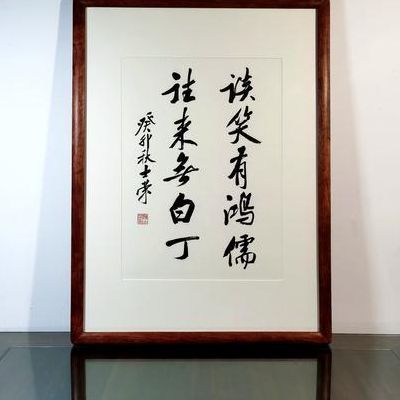 谈笑有鸿儒
往来无白丁
癸卯秋士荣